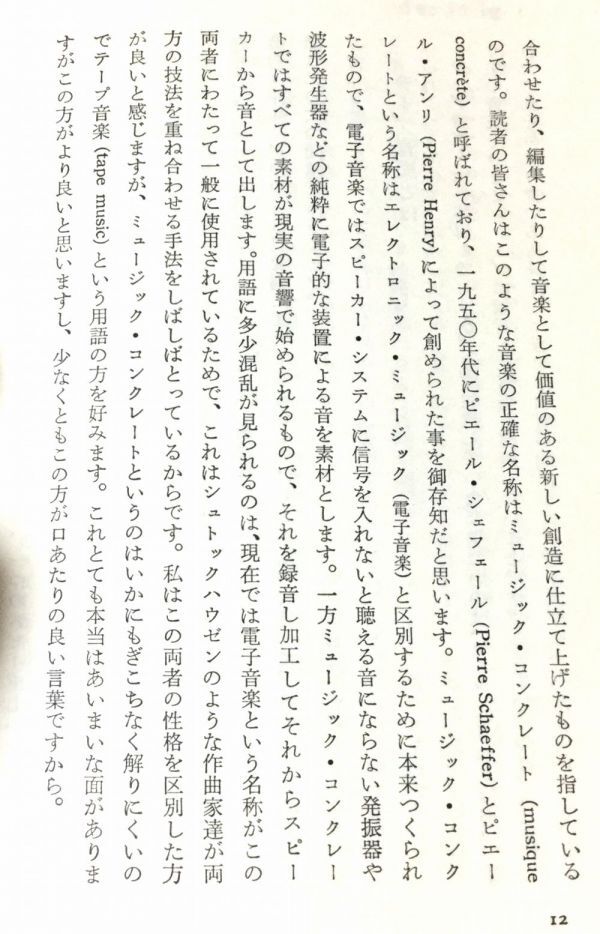 合わせたり、編集したりして音楽として価値のある新しい創造に仕立て上げたものを指している
のです。読者の皆さんはこのような音楽の正確な名称はミュージック・コンクレート (musique
concrète) と呼ばれており、一九五〇年代にピエール・シェフェール (Pierre Schaeffer) とピエー
ル・アンリ (Pierre Henry) によって創められた事を御存知だと思います。ミュージック・コンク
レートという名称はエレクトロニック・ミュージック (電子音楽) と区別するために本来つくられ
たもので、電子音楽ではスピーカー・システムに信号を入れないと聴える音にならない発振器や
波形発生器などの純粋に電子的な装置による音を素材とします。一方ミュージック・コンクレー
トではすべての素材が現実の音響で始められるもので、それを録音し加工してそれからスピー
カーから音として出します。用語に多少混乱が見られるのは、現在では電子音楽という名称がこの
両者にわたって一般に使用されているためで、これはシュトックハウゼンのような作曲家達が両
方の技法を重ね合わせる手法をしばしばとっているからです。私はこの両者の性格を区別した方
が良いと感じますが、ミュージック・コンクレートというのはいかにもぎこちなく解りにくいの
でテープ音楽 (tape music) という用語の方を好みます。これとても本当はあいまいな面がありま
すがこの方がより良いと思いますし、少なくともこの方が口あたりの良い言葉ですから。
12